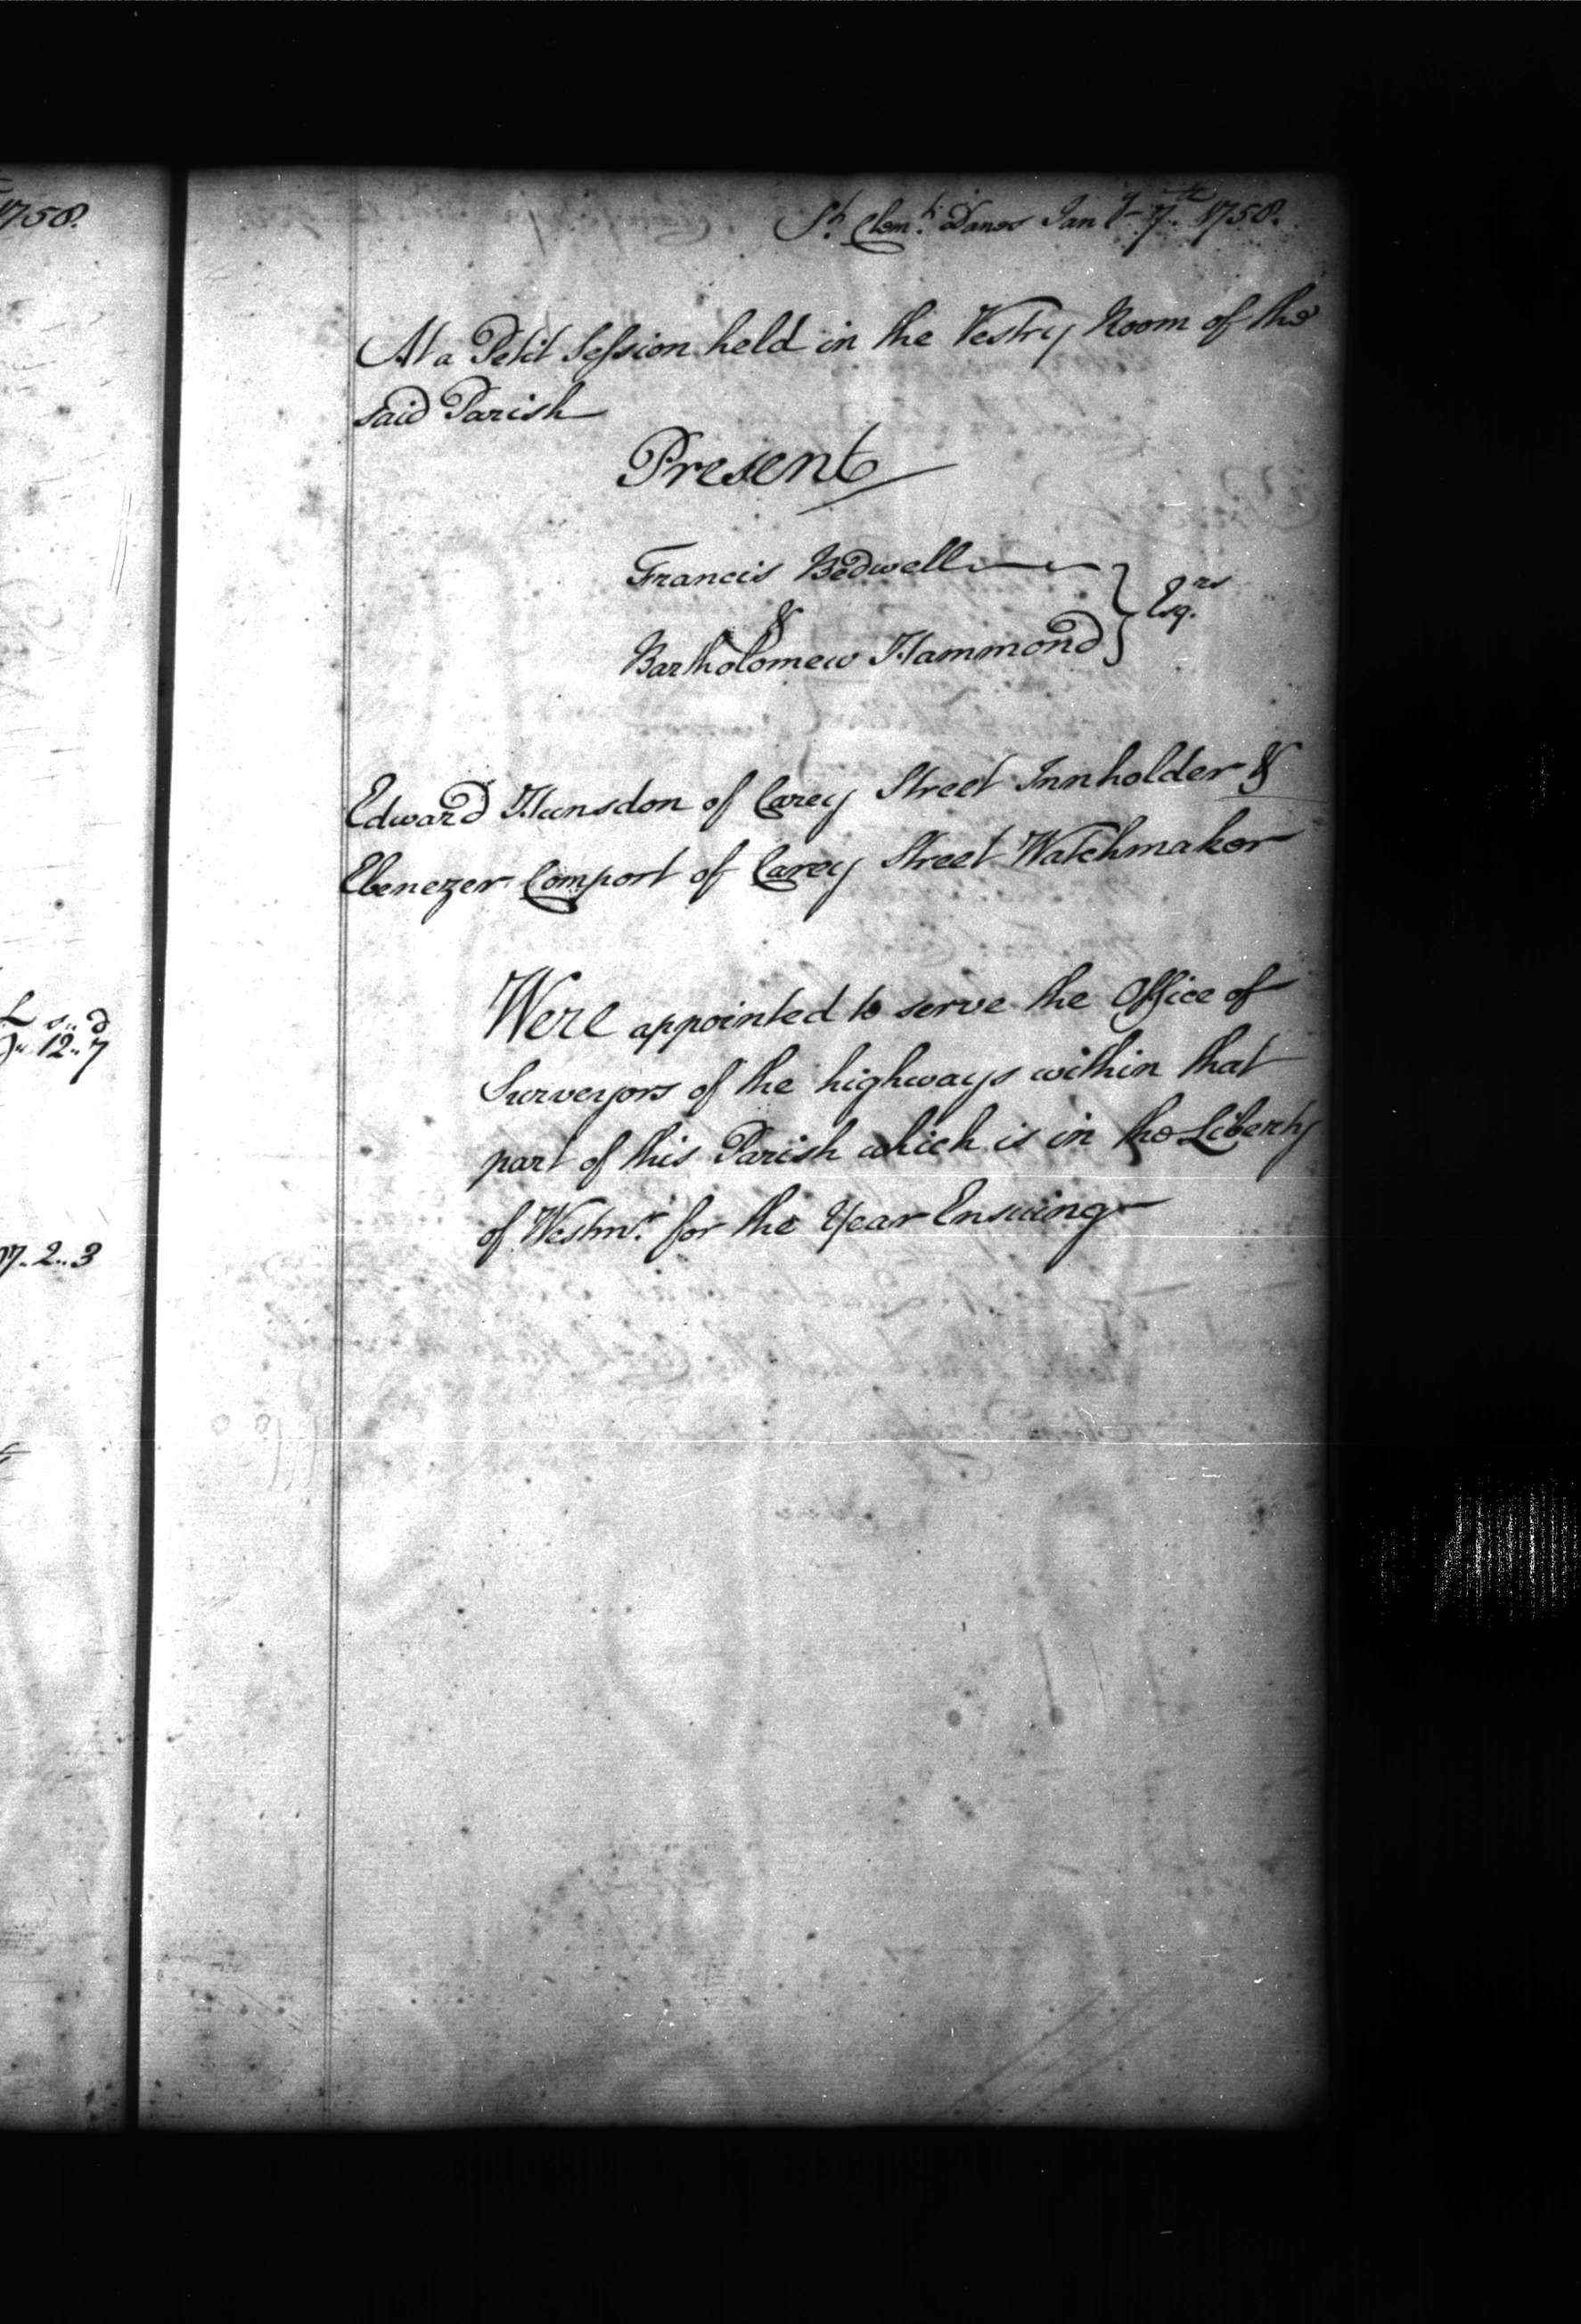 1758.
L s.. d
12.. 7
7.. 2.. 3
St. Clemt. Danes Jany. 7th. 1758.
At a Petit Session held in the Vestry Room of the
said Parish
Present
Francis Bedwell
&
Bartholomew Hammond
Esqrs.
Edward Hunsdon of Carey Street Innholder &
Ebenezer Comport of Carey Street Watchmaker
Were appointed to serve the Office of
Surveyors of the highways within that
part of this Parish which is in the Liberty
of Westmr. for the Year Ensuing